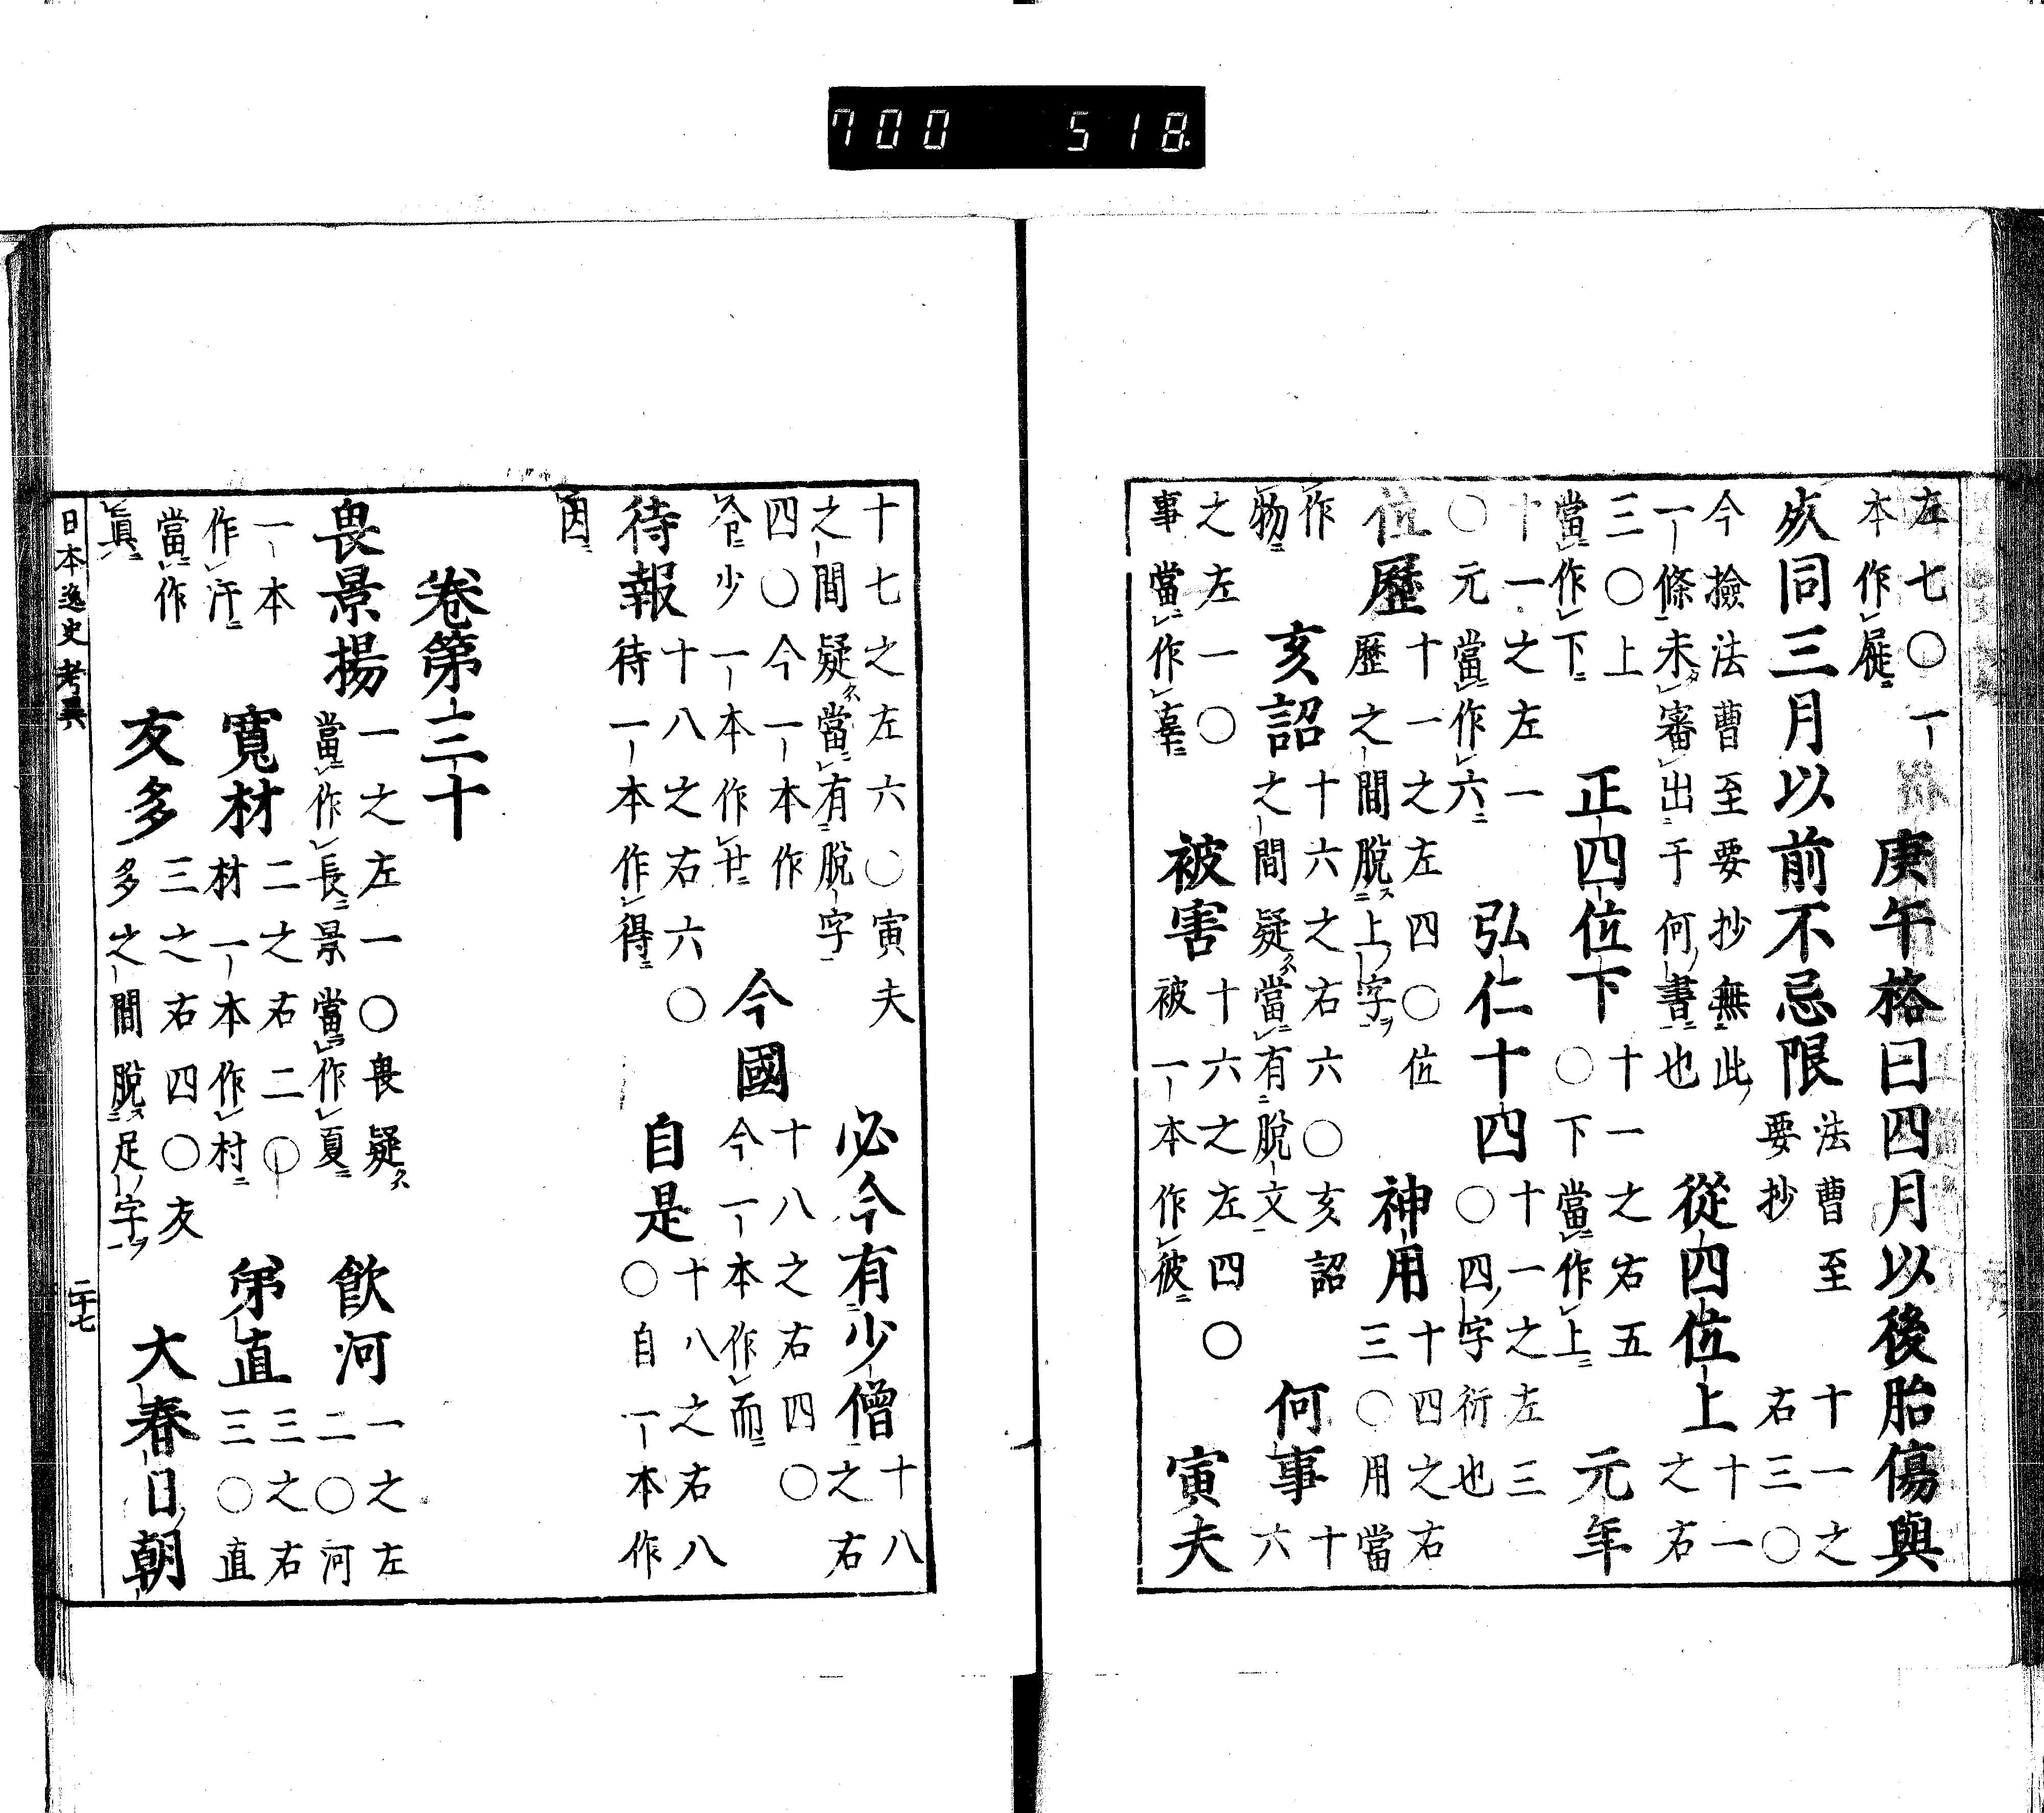 700 518
左七〇一本作屣　庚午格曰四月以後胎傷與
疾同三月以前不忌限　法曹至要抄　十一之右三〇
今撿法曹至要抄無此一條未審出于何書也　從四位上　十一之右
三〇上當作下　正四位下　十一之右五〇下當作上　元年
十一之左一〇元當作六　弘仁十四　十一之左三〇四字衍也
位歷　十一之左四〇位歷之間脫上字　神用　十四之右三〇用當
作物　亥詔　十六之右六〇亥詔之間疑當有脫文　何事　十六
之左一〇事當作辜　被害　十六之左四〇被一本作彼　寅夫
十七之左六〇寅夫之間疑當有脫字　必今有少僧　十八之右
四〇今一本作令少一本作廿　今國　十八之右四〇今一本作而
待報　十八之右六〇待一本作得　自是　十八之右八〇自一本作
因
卷第三十
畏景揚　一之左一〇畏疑當作長景當作夏　飲河　一之左二〇河
一本作汗　寬材　二之右二〇材一本作村　弟直　三之右三〇直
當作眞　友多　三之右四〇友多之間脫足字　大春日朝
日本逸史考異　二十七